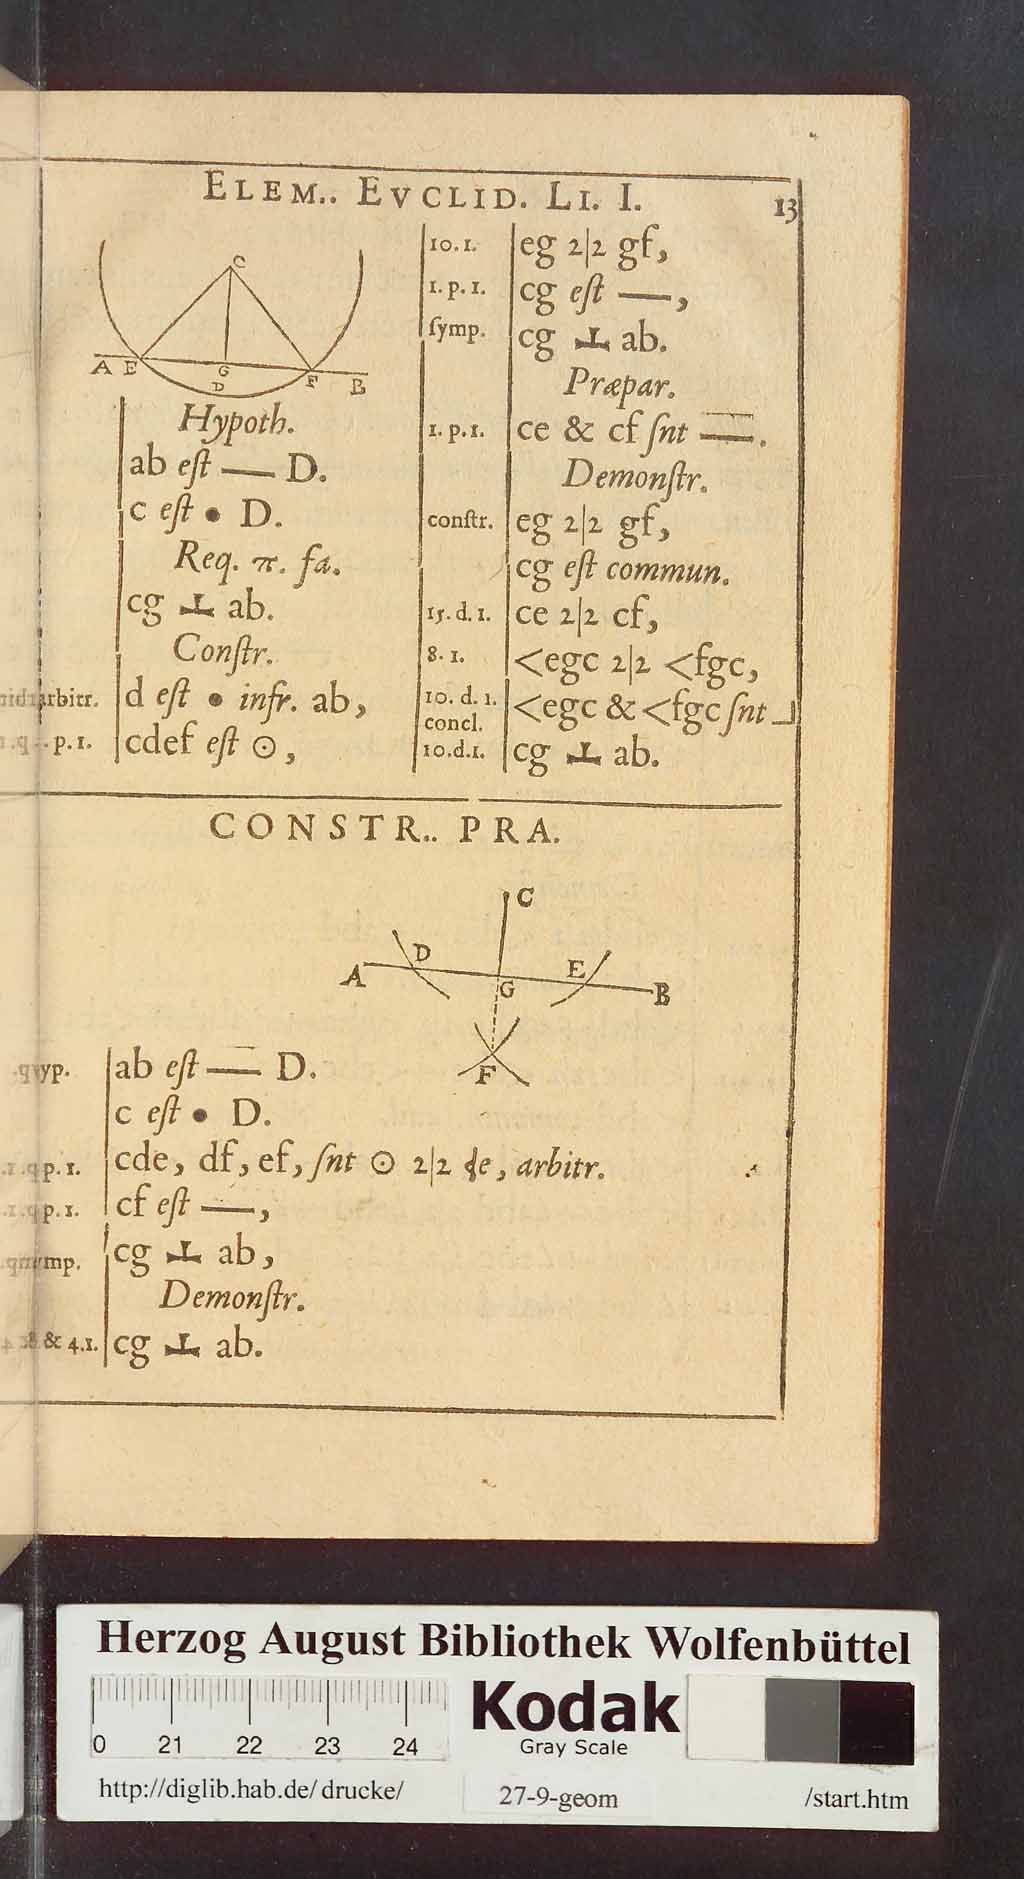 ELEM.. EVCLID. LI. I. 13
C
A E G F B
D
Hypoth.
ab eſt — D.
c eſt • D.
Req. π. fa.
cg ⊥ ab.
Conſtr.
arbitr. d eſt • infr. ab,
p. 1. cdef eſt ⊙,
10. 1. eg 2|2 gf,
1. p. 1. cg eſt —,
ſymp. cg ⊥ ab.
Præpar.
1. p. 1. ce & cf ſnt —.
Demonſtr.
conſtr. eg 2|2 gf,
cg eſt commun.
15. d. 1. ce 2|2 cf,
8. 1. <egc 2|2 <fgc,
10. d. 1. <egc & <fgc ſnt ⅃
concl.
10.d.1. cg ⊥ ab.
CONSTR.. PRA.
C
D
A E
G B
F
yp. ab eſt — D.
c eſt • D.
p. 1. cde, df, ef, ſnt ⊙ 2|2 arbitr.
p. 1. cf eſt —,
mp. cg ⊥ ab,
Demonſtr.
& 4.1. cg ⊥ ab.
Herzog August Bibliothek Wolfenbüttel
0 21 22 23 24
Kodak
Gray Scale
http://diglib.hab.de/drucke/ 27-9-geom /start.htm